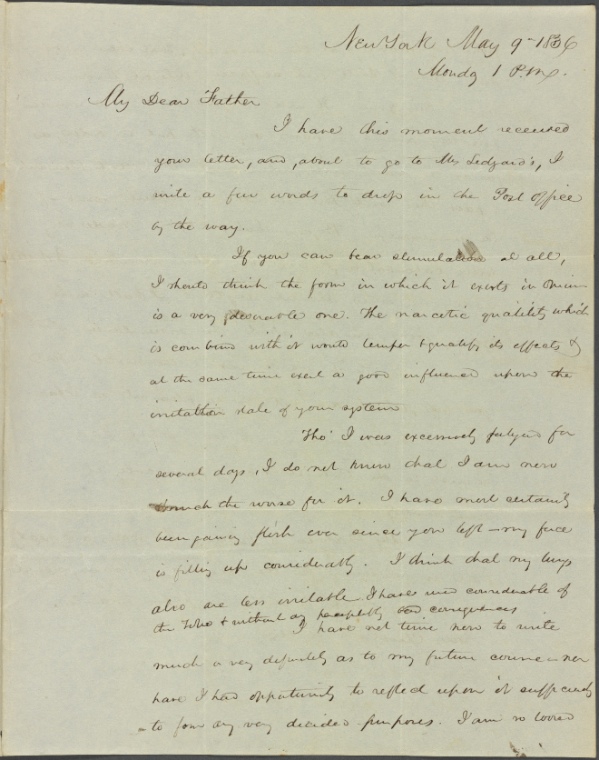 New York May 9th 1836
Monday 1 P.M.
My Dear Father
I have this moment received
your letter, and, about to go to Mr Ledyard's, I
write a few words to drop in the Post Office
by the way.
If you can bear stimulation at all,
I should think the form in which it exists in
is a very desirable one. The narcotic quality which
is combined with it would temper & qualify its effects &
at the same time exert a good influence upon the
irritation state of your system
Tho' I was excessively fatigued for
several days, I do not know that I am now
much the worse for it. I have most certainly
been gaining flesh ever since you left - my face
is filling up considerably. I think that my lungs
also are less irritable I have used considerable of
the & without any perceptibly bad consequences
I have not time now to write
much or very definitely as to my future course - nor
have I had opportunity to reflect upon it sufficiently
to form any very decided purposes. I am so